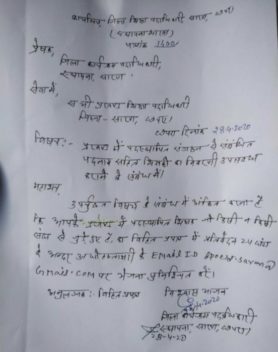 कार्यालय, जिला शिक्षा पदाधिकारी सारण, छपरा
(स्थापना शाखा)
पत्रांक 1400
प्रेषक,
जिला कार्यक्रम पदाधिकारी,
स्थापना, सारण
सेवा में,
सभी प्रखण्ड शिक्षा पदाधिकारी
जिला - सारण, छपरा
छपरा दिनांक 28.4.2020
विषय:- प्रखण्ड में पदस्थापित से संबंधित
पदनाम सहित शिक्षकों का विवरणी उपलब्ध
कराने के संबंध में।
महाशय,
उपर्युक्त विषय के संबंध में अंकित करना है
कि आपके प्रखण्ड में पदस्थापित शिक्षक जो किसी न किसी
संघ से जुड़े हुए हैं, का विहित प्रपत्र में प्रतिवेदन 24 घंटा
के अन्दर अधोहस्ताक्षरी के Email ID
Gmail.com पर भेजना सुनिश्चित करें।
अनुलग्नक:- विहित प्रपत्र
विश्वास भाजन
जिला कार्यक्रम पदाधिकारी
स्थापना, सारण, छपरा
28-4-20